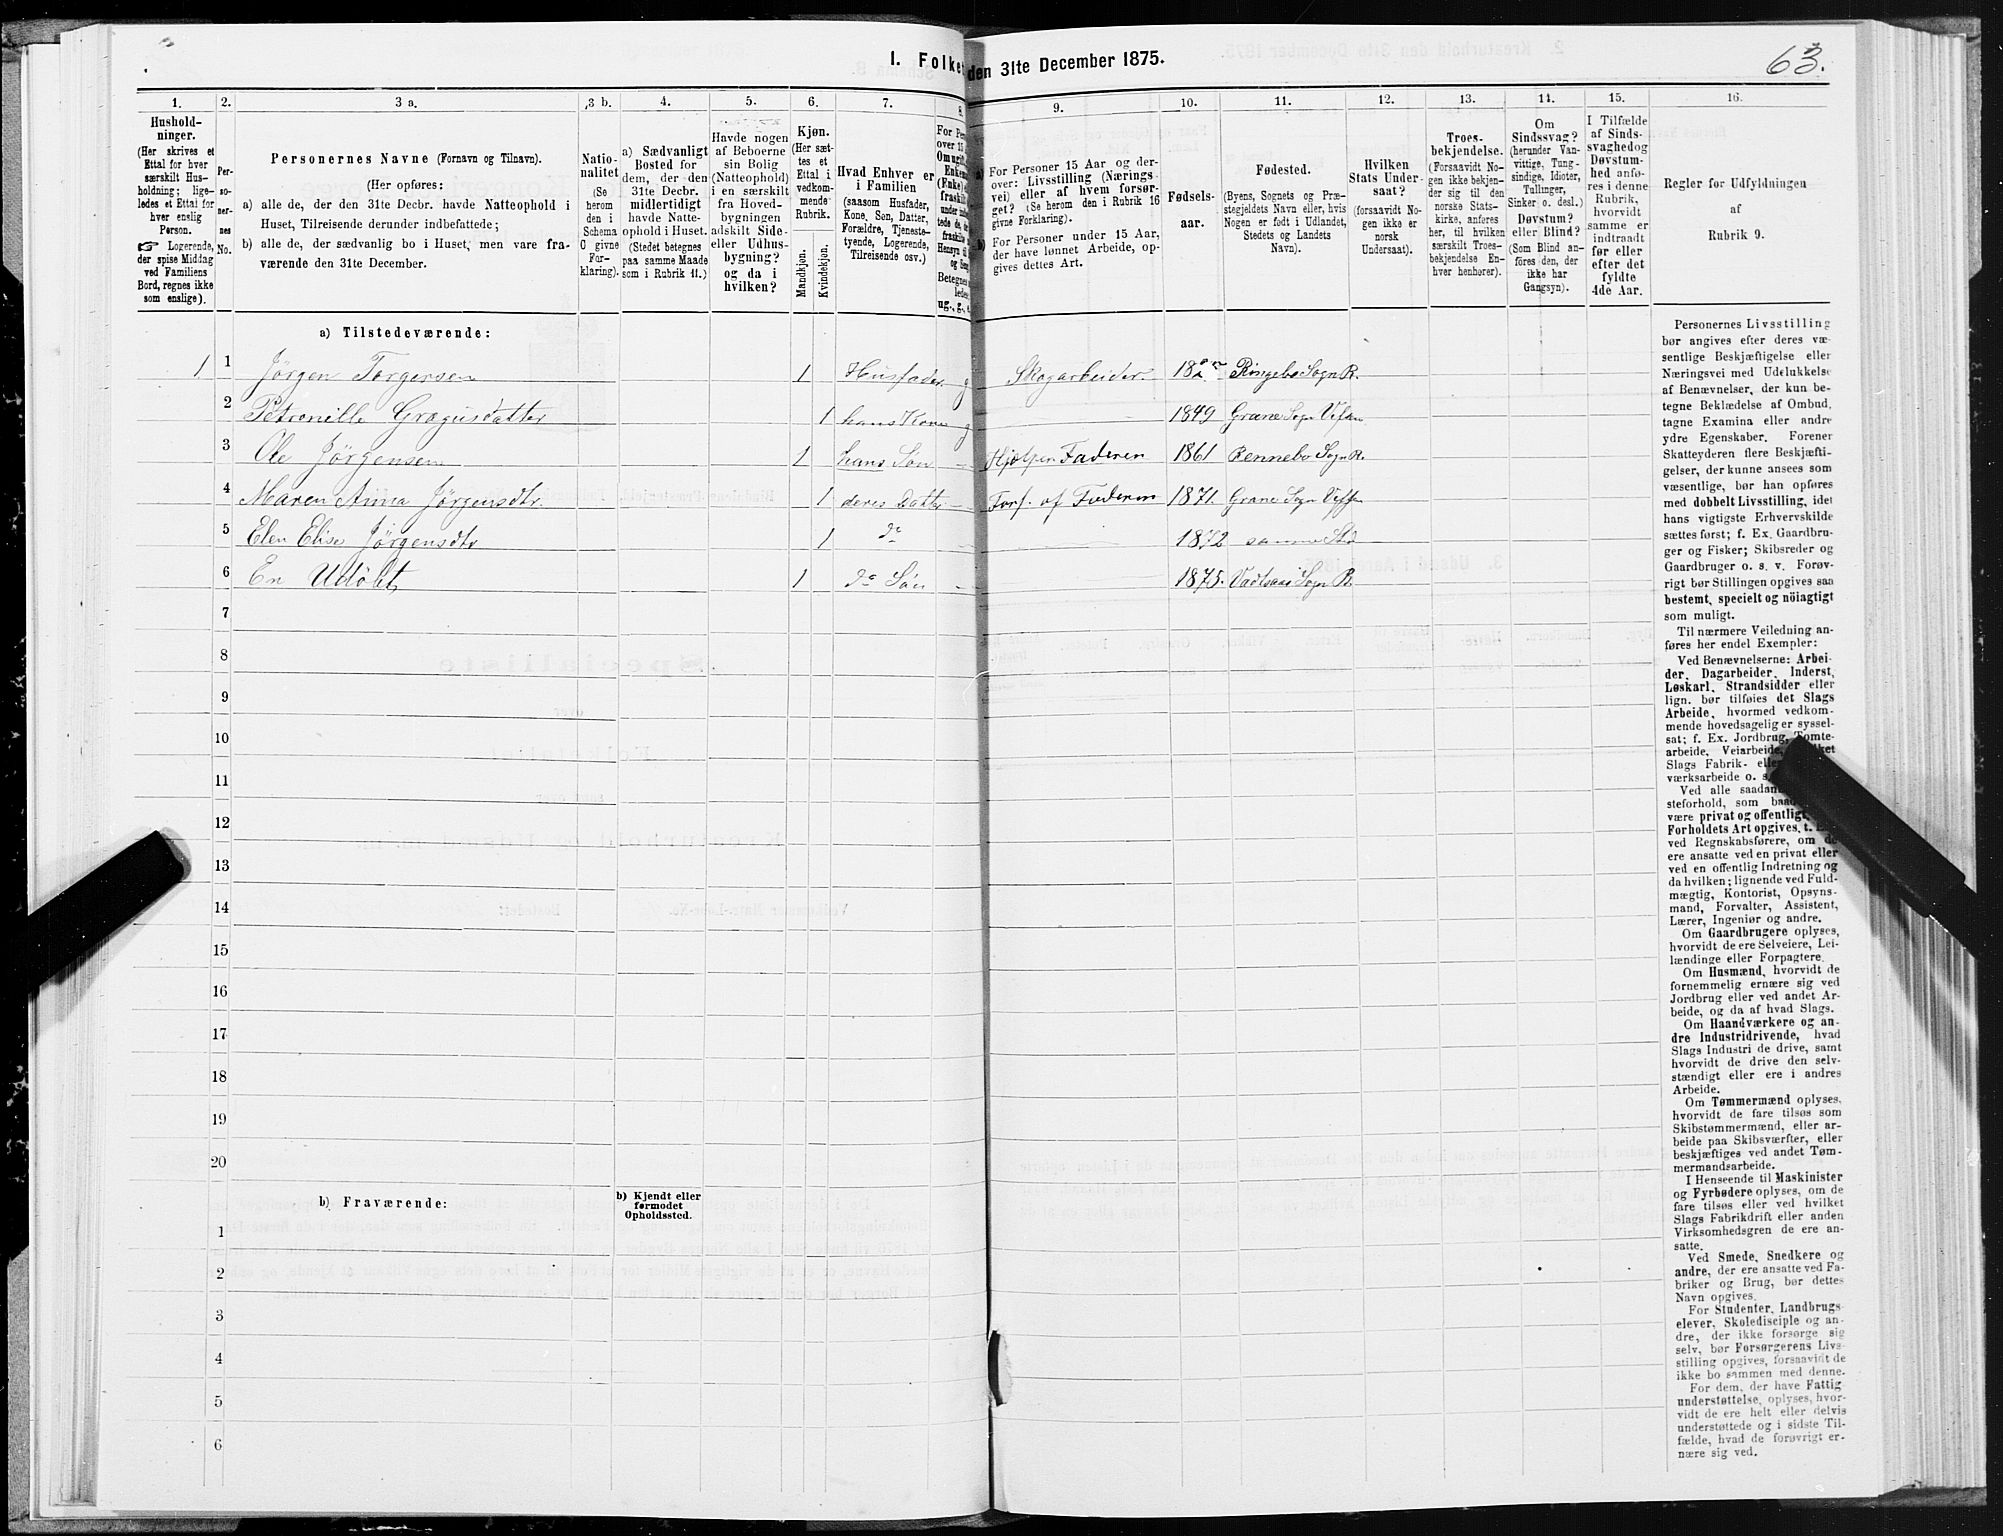 1. Folket
den 31te December 1875.
63.
1.
2.
3 a.
3 b.
4.
5.
6.
7.
8.
9.
10.
11.
12.
13.
14.
15.
16.
Hushold-
ninger.
(Her skrives et
Ettal for hver
særskilt Hus-
holdning; lige-
ledes et Ettal for
hver enslig
Person.
☞ Logerende,
der spise Middag
ved Familiens
Bord, regnes ikke
som enslige).
Per-
so-
ner-
nes
No.
Personernes Navne (Fornavn og Tilnavn).
(Her opføres:
a) alle de, der den 31te Decbr. havde Natteophold i
Huset, Tilreisende derunder indbefattede;
b) alle de, der sædvanlig bo i Huset, men vare fra-
værende den 31te December.
Natio-
nalitet
(Se
herom
den i
Schema
C givne
For-
klaring).
a) Sædvanligt
Bosted for
dem, der den
31te Decbr.
midlertidigt
havde Natte-
ophold i Huset.
(Stedet betegnes
paa samme Maade
som i Rubrik 11.)
Havde nogen
af Beboerne
sin Bolig
(Natteophold)
i en særskilt
fra Hoved-
bygningen
adskilt Side-
eller Udhus-
bygning?
og da i
hvilken?
Kjøn.
(Her sæt-
tes et
Ettal i
vedkom-
mende
Rubrik.
Mandkjøn.
Kvindekjøn.
Hvad Enhver er
i Familien
(saasom Husfader,
Kone, Søn, Datter,
Forældre, Tjeneste-
tyende, Logerende,
Tilreisende osv.)
For Pe
over 15
Omugift
Enken
(Enke)
fraskilt
ug., g., e
a) For Personer 15 Aar og der-
over: Livsstilling (Nærings-
vei) eller af hvem forsør-
get? (Se herom den i Rubrik 16
givne Forklaring).
b) For Personer under 15 Aar,
der have lønnet Arbeide, op-
gives dettes Art.
Fødsels-
aar.
Fødested.
(Byens, Sognets og Præ-
stegjeldets Navn eller, hvis
Nogen er født i Udlandet,
Stedets og Landets
Navn).
Hvilken
Stats Under-
saat?
(forsaavidt No-
gen ikke er
norsk
Undersaat).
Troes-
bekjendelse.
(Forsaavidt No-
gen ikke bekjen-
der sig til den
norske Stats-
kirke, anføres
her, til hvilken
særskilt Troes-
bekjendelse En-
hver henhører).
Om
Sindssvag?
(herunder Van-
vittige, Tung-
sindige, Idioter,
Tullinger,
Sinker o. desl.)
Døvstum?
eller Blind?
(Som Blind an-
føres den, der
ikke har
Gangsyn).
I Tilfælde
af Sinds-
svaghed og
Døvstum-
hed anfø-
res i denne
Rubrik,
hvorvidt
samme er
indtraadt
før eller
efter det
fyldte
4de Aar.
Regler for Udfyldningen
af
Rubrik 9.
a) Tilstedeværende:
1 1 Jörgen Torgersen 1 Husfader g Skogarbeider. 18 Ringebo Sogn R.
2 Petronille Gragusdatter 1 hans Kone g 1849 Grane Sogn Vefsen
3 Ole Jörgensen 1 hans Søn – Hjælper Faderen 1861 Rennebo Sogn R.
4 Maren Anna Jörgensdtr. 1 deres Datter – Fors. af Faderen 1871. Grane Sogn Veffsen
5 Elen Elise Jörgensdtr 1 do 1872 samme Std
6 En Udöbt 1 do Søn – 1875. Vadtsaas Sogn R.
7
8
9
10
11
12
13
14
15
16
17
18
19
20
b) Fraværende:
b) Kjendt eller
formodet
Opholdssted.
1
2
3
4
5
6
Personernes Livsstilling
bør angives efter deres væ-
sentlige Beskjæftigelse eller
Næringsvei med Udelukkelse
af Benævnelser, der kun be-
tegne Beklædelse af Ombud,
tagne Examina eller andre
ydre Egenskaber. Forener
Skatteyderen flere Beskjæfti-
gelser, der kunne ansees som
væsentlige, bør han opføres
med dobbelt Livsstilling, idet
hans vigtigste Erhvervskilde
sættes først; f. Ex. Gaardbru-
ger og Fisker; Skibsreder og
Gaardbruger o. s. v. Forøv-
rigt bør Stillingen opgives saa
bestemt, specielt og nöiagtigt
som muligt.
Til nærmere Veiledning an-
føres her endel Exempler:
Ved Benævnelserne: Arbei-
der, Dagarbeider, Inderst,
Løskarl, Strandsidder eller
lign. bør tilføies det Slags
Arbeide, hvormed vedkom-
mende hovedsagelig er syssel-
sat; f. Ex. Jordbrug, Tomte-
arbeide, Veiarbeide,
Slags Fabrik-
værksarbeide o. s.
Ved alle saadan
steforhold, som
være privat og offentligt,
Forholdets Art opgives, t.
ved Regnskabsførere, om de
ere ansatte ved en privat eller
ved en offentlig Indretning og
da hvilken; lignende ved Fuld-
mægtig, Kontorist, Opsyns-
mand, Forvalter, Assistent,
Lærer, Ingeniør og andre.
Om Gaardbrugere oplyses,
hvorvidt de ere Selveiere, Lei-
lændinge eller Forpagtere.
Om Husmænd, hvorvidt de
fornemmelig ernære sig ved
Jordbrug eller ved andet Ar-
beide, og da af hvad Slags.
Om Haandværkere og an-
dre Industridrivende, hvad
Slags Industri de drive, samt
hvorvidt de drive den selv-
stændigt eller ere i andres
Arbeide.
Om Tømmermænd oplyses,
hvorvidt de fare tilsøs som
Skibstømmermænd, eller ar-
beide paa Skibsværfter, eller
beskjæftiges ved andet Tøm-
mermandsarbeide.
I Henseende til Maskinister
og Fyrbødere oplyses, om de
fare tilsøs eller ved hvilket
Slags Fabrikdrift eller anden
Virksomhedsgren de ere an-
satte.
Ved Smede, Snedkere og
andre, der ere ansatte ved Fa-
briker og Brug, bør dettes
Navn opgives.
For Studenter, Landbrugs-
elever, Skoledisciple og an-
dre, der ikke forsørge sig
selv, bør Forsørgerens Livs-
stilling opgives, forsaavidt de
ikke bo sammen med denne.
For dem, der have Fattig-
understøttelse, oplyses, hvor-
vidt de ere helt eller delvis
understøttede og i sidste Til-
fælde, hvad de forøvrigt er-
nære sig ved.